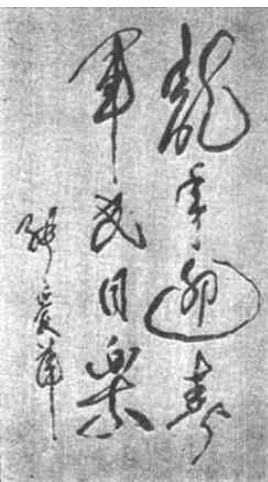 龍年迎春
軍民同樂
張愛萍